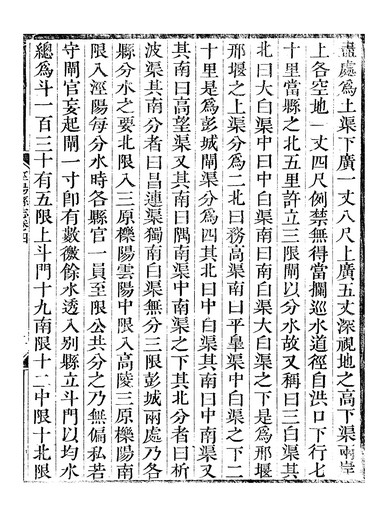 盡處爲土渠下廣一丈八尺上廣五丈深視地之高下渠兩岸
上各空地一丈四尺例禁無得當攔巡水道徑自洪口下行七
十里當縣之北五里許立三限閘以分水故又稱曰三白渠其
北曰大白渠中曰中白渠南曰南白渠大白渠之下是爲邢堰
邢堰之上渠分爲二北曰務高渠南曰平皋渠中白渠之下二
十里是爲彭城閘渠分爲四其北曰中白渠其南曰中南渠又
其南曰高望渠又其南曰隅南渠中南渠之下其北分者曰析
波渠其南分者曰昌連渠獨南白渠無分三限彭城兩處乃各
縣分水之要北限入三原櫟陽雲陽中限入高陵三原櫟陽南
限入涇陽每分水時各縣官一員至限公共分之乃無偏私若
守閘官妄起閘一寸卽有數徼餘水透入別縣立斗門以均水
總爲斗一百三十有五限上斗門十九南限十二中限十北限